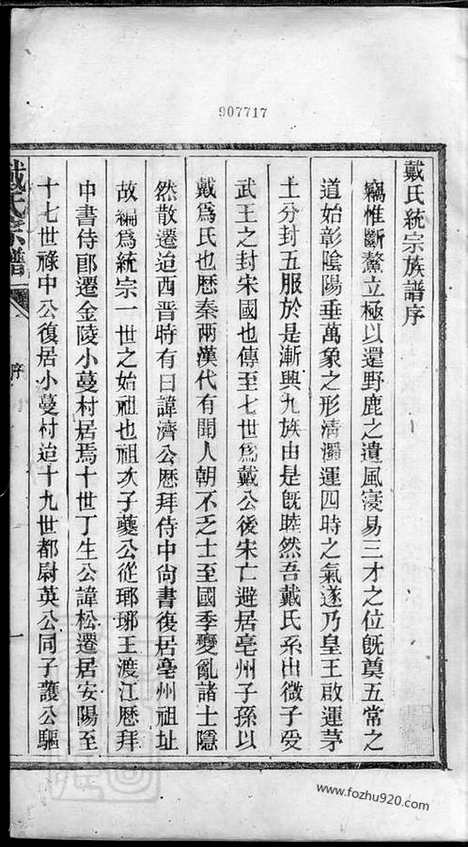 907717
戴氏統宗族譜序
竊惟斷鰲立極以還野鹿之遺風寖易三才之位旣奠五常之
道始彰陰陽垂萬象之形淸濁運四時之氣遂乃皇王啟運茅
土分封五服於是漸興九族由是旣睦然吾戴氏系由微子受
武王之封宋國也傳至七世爲戴公後宋亡避居亳州子孫以
戴爲氏也歷秦兩漢代有聞人朝不乏士至國季變亂諸士隱
然散遷迨西晋時有曰諱濟公歷拜侍中尙書復居亳州祖址
故編爲統宗一世之始祖也祖次子夔公從瑯琊王渡江歷拜
中書侍郎遷金陵小蔓村居焉十世丁生公諱松遷居安陽至
十七世祿中公復居小蔓村迨十九世都尉英公同子護公驅
戴氏宗譜
序
一
www.fozhu920.com